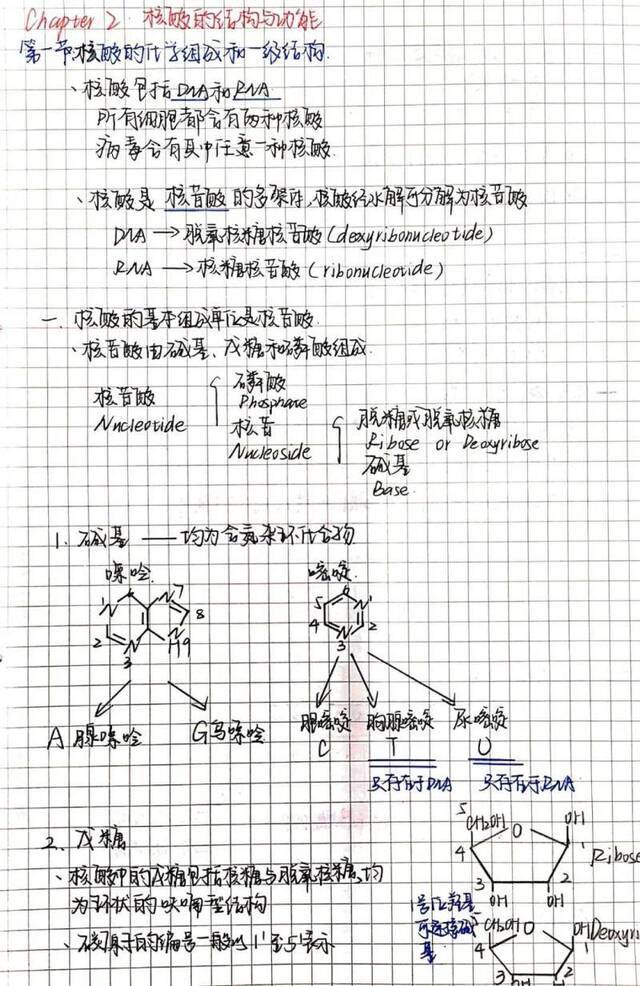 Chapter 2 核酸的结构与功能
第一节 核酸的化学组成和一级结构
、核酸包括DNA和RNA
所有细胞都含有两种核酸
病毒含有其中任意一种核酸
、核酸是 核苷酸 的多聚体,核酸经水解可分解为核苷酸
DNA → 脱氧核糖核苷酸(dexyribonucleotide)
RNA → 核糖核苷酸(ribonucleotide)
一、核酸的基本组成单位是核苷酸
、核苷酸由碱基、戊糖和磷酸组成
磷酸
核苷酸 Phosphate
Nucleotide 核苷 脱糖或脱氧核糖
Nucleoside Ribose or Deoxyribose
碱基
Base
1. 碱基 —— 均为含氮杂环化合物
嘌呤 嘧啶
1 N 6 N 7 5 6 N 1
8 4 2
2 N N H 9 N
3 3
A 腺嘌呤 G 鸟嘌呤 胞嘧啶 胸腺嘧啶 尿嘧啶
C T U
只存在于DNA 只存在于RNA
2、戊糖
5 CH2OH O OH
4 1 Ribose
、核酸中的戊糖包括核糖与脱氧核糖,均 3 2
为环状的呋喃型结构 OH OH
1号位羟基
可连接碱
基
、碳原子的编号一般以1'至5'表示
5 CH2OH O OH Deoxyri
4 1
3 2
OH H